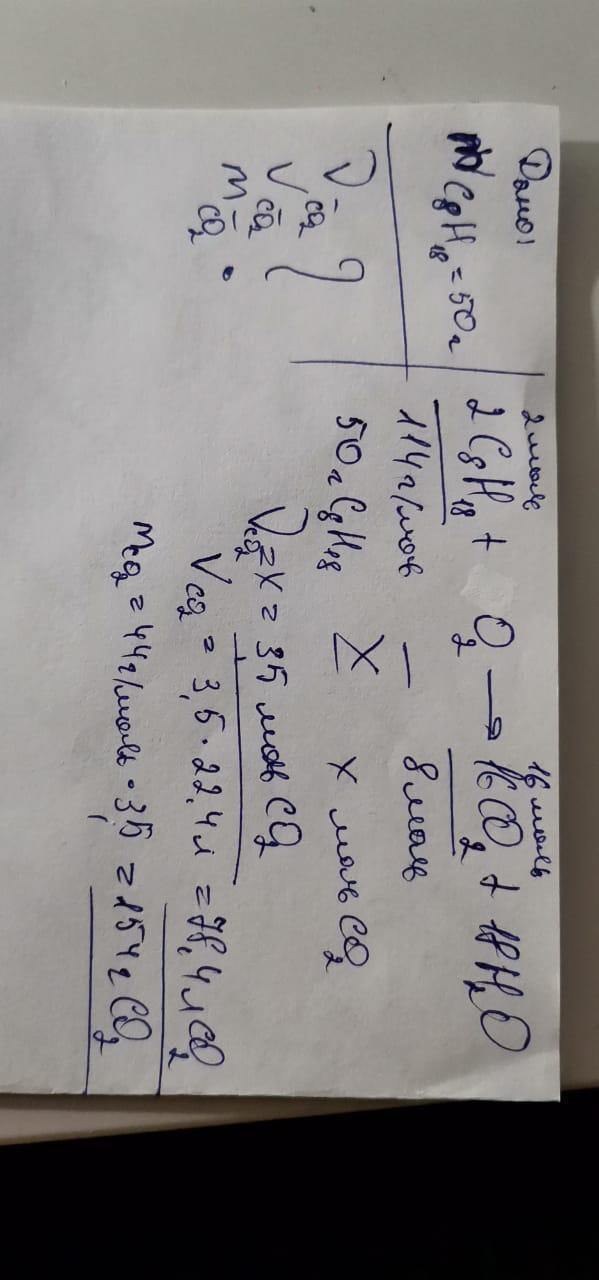 Дано:
m C8H18 = 50 г
ν CO2
V CO2 ?
m CO2
2 моль 16 моль
2C8H18 + O2 → 16CO2 + 18H2O
114 г/моль — 8 моль
50 г C8H18 X x моль CO2
ν CO2 = x = 3,5 моль CO2
V CO2 = 3,5 · 22,4 л = 78,4 л CO2
m CO2 = 44 г/моль · 3,5 = 154 г CO2